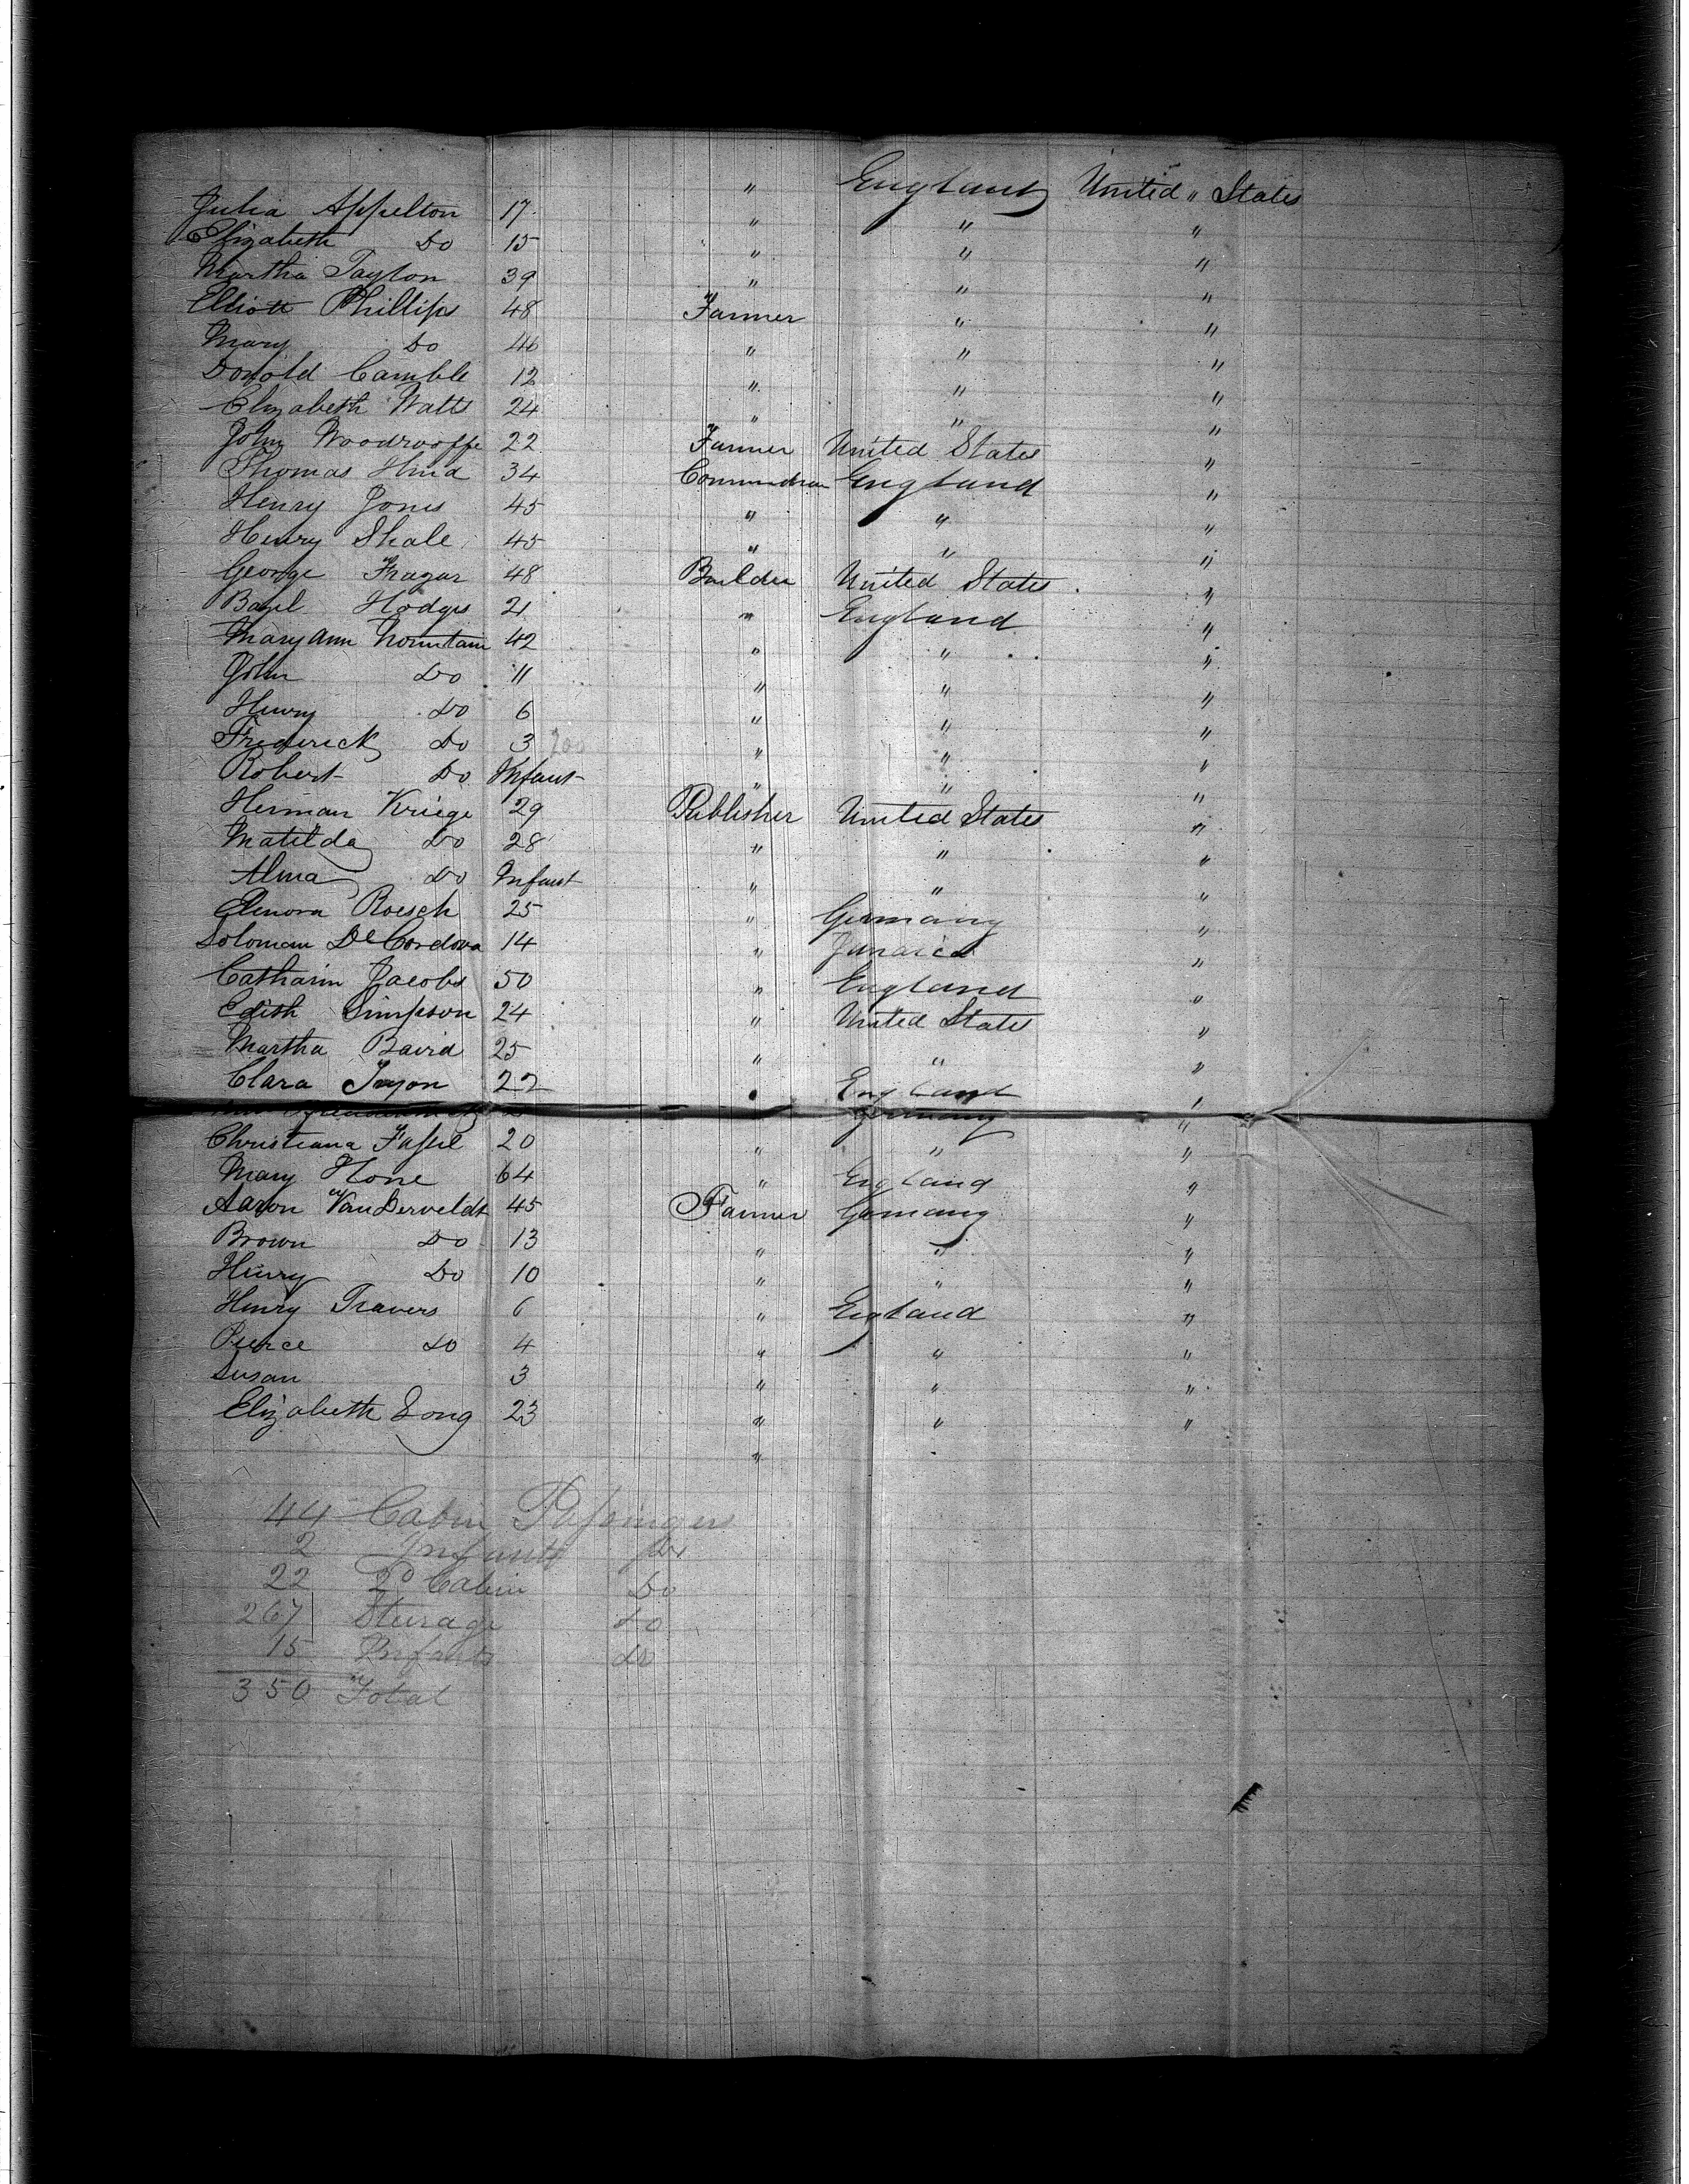 " England United " States
Julia Appelton 17 " " "
Elizabeth Do 15 " " "
Martha Taylor 39 " " "
Elliott Phillips 48 Farmer " "
Mary Do 46 " " "
Donold Camble 12 " " "
Elizabeth Watts 24 " " "
John Woodrooffe 22 Farmer United States "
Thomas Hind 34 England "
Henry Jones 45 " " "
Henry Shale 45 " " "
George Fragar 48 Builder United States "
Bazil Hodges 21 " England "
Mary Ann Mountain 42 " " "
John Do 11 " " "
Henry Do 6 " " "
Frederick Do 3 " " "
Robert Do Infant " " "
Herman Kriege 29 Publisher United States "
Matilda Do 28 " " "
Alma Do Infant " " "
Elenora Roesch 25 " Germany "
Soloman De Cordova 14 " Jamaica "
Catharin Jacobs 50 " England "
Edith Simpson 24 " United States "
Martha Baird 25 " " "
Clara 22 " England "
Germany "
Christiana 20 " " "
Mary Hone 64 " England "
Aaron VanDerveldt 45 Farmer Germany "
Brown Do 13 " " "
Henry Do 10 " " "
Henry Travers 6 " England "
Pierce do 4 " " "
Susan 3 " " "
Elizabeth Long 23 " " "
"
44 Cabin Passingers
2 Infants Do
22 2d Cabin Do
267 Sturage do
15 Infants do
350 Total